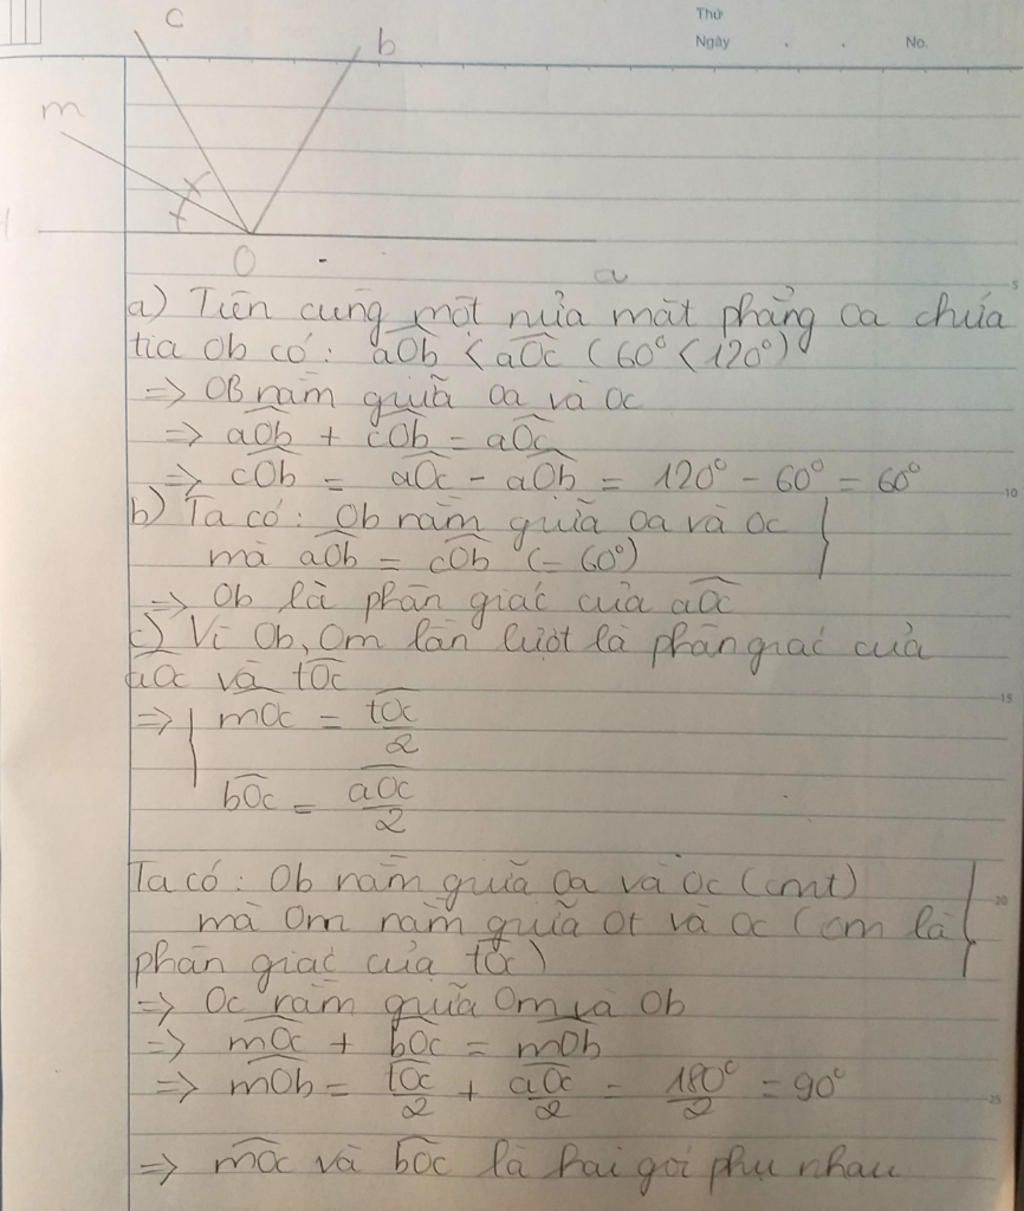 Thứ
Ngày . . No.
c
b
m
t
O
a
5
a) Trên cùng một nửa mặt phẳng Oa chứa
tia Ob có: aOb < aOc (60° < 120°)
=> OB nằm giữa Oa và Oc
=> aOb + cOb = aOc
=> cOb = aOc - aOb = 120° - 60° = 60°
10
b) Ta có: Ob nằm giữa Oa và Oc }
mà aOb = cOb (= 60°)
=> Ob là phân giác của aOc
c) Vì Ob, Om lần lượt là phân giác của
aOc và tOc
15
=> { mOc = tOc/2
bOc = aOc/2
Ta có: Ob nằm giữa Oa và Oc (cmt) }
20
mà Om nằm giữa Ot và Oc (Om là
phân giác của tOc)
=> Oc nằm giữa Om và Ob
=> mOc + bOc = mOb
=> mOb = tOc/2 + aOc/2 = 180°/2 = 90°
25
=> mOc và bOc là hai góc phụ nhau